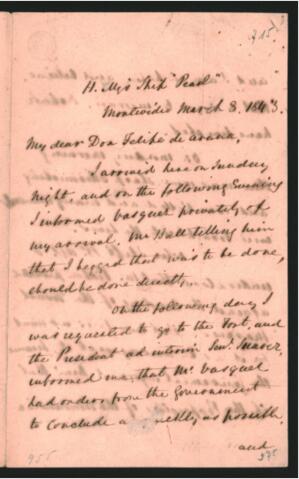 215
H. My's Ship "Pearl"
Montevideo March 8. 1843.
My dear Don Felipe de Arana,
I arrived here on Sunday
Night, and on the following Evening
I informed Vasquez privately of
my arrival. Mr Hall telling him
that I begged that was to be done,
should be done directly.
On the following day I
was requested to go to the Fort, and
the President ad interim Senr. Suarez,
informed me, that Mr. Vasquez
had orders from the Government
to conclude a as possible,
and
955